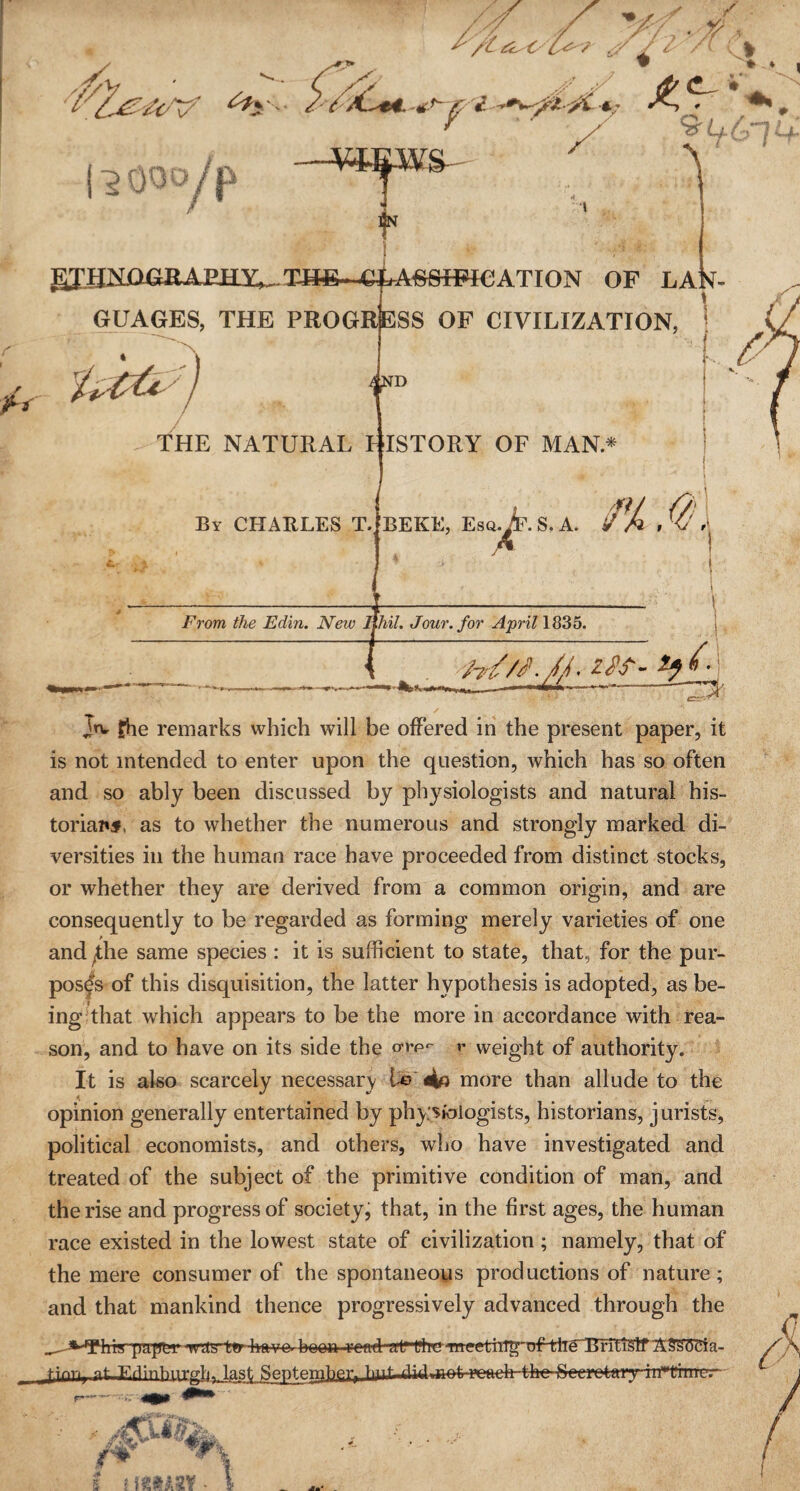 Views in Ethnography, &c.
94674
12000/p
VIEWS
IN
ETHNOGRAPHY, THE CLASSIFICATION OF LAN-
GUAGES, THE PROGRESS OF CIVILIZATION,
AND
THE NATURAL HISTORY OF MAN.*
By CHARLES T. BEKE, Esq. F. S. A.
From the Edin. New Phil. Jour. for April 1835.
In the remarks which will be offered in the present paper, it
is not intended to enter upon the question, which has so often
and so ably been discussed by physiologists and natural his-
torians, as to whether the numerous and strongly marked di-
versities in the human race have proceeded from distinct stocks,
or whether they are derived from a common origin, and are
consequently to be regarded as forming merely varieties of one
and the same species : it is sufficient to state, that, for the pur-
poses of this disquisition, the latter hypothesis is adopted, as be-
ing that which appears to be the more in accordance with rea-
son, and to have on its side the weight of authority.
It is also scarcely necessary to do more than allude to the
opinion generally entertained by physiologists, historians, jurists,
political economists, and others, who have investigated and
treated of the subject of the primitive condition of man, and
the rise and progress of society, that, in the first ages, the human
race existed in the lowest state of civilization ; namely, that of
the mere consumer of the spontaneous productions of nature ;
and that mankind thence progressively advanced through the
* This paper was to have been read at the meeting of the British Associa-
tion, at Edinburgh, last September, but did not reach the Secretary in time.
LIBRARY